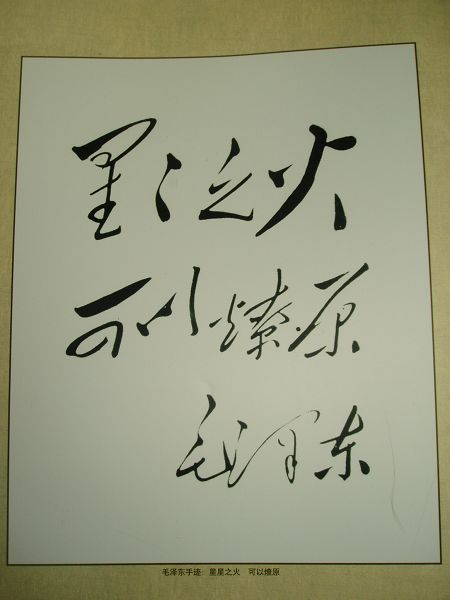 星星之火
可以燎原
毛泽东
毛泽东手迹：星星之火　可以燎原